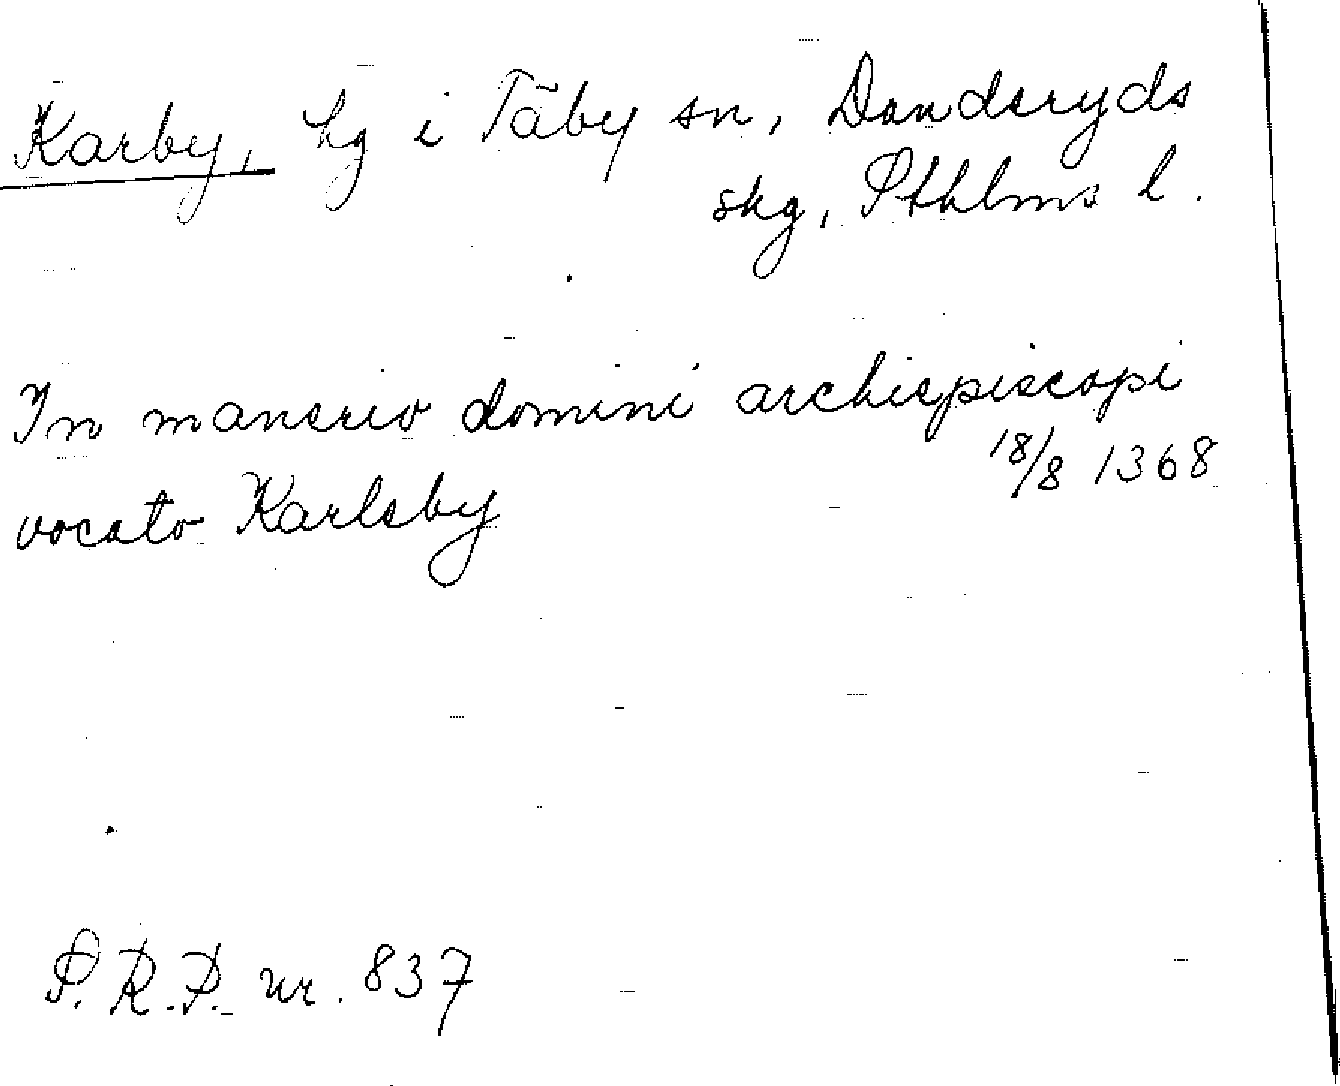 Karby, hg i Täby sn, Danderyds
skg, Sthlms l.
In manerio domini archiepiscopi
18/8 1368
vocato Karlsby
S.R.P. nr. 837